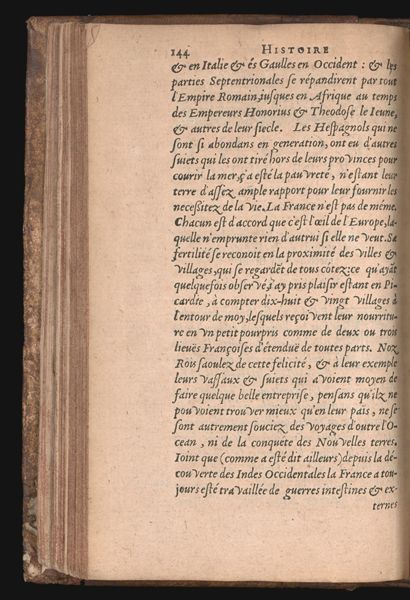 144 HISTOIRE
& en Italie & és Gaulles en Occident : & les
parties Septentrionales se répandirent par tout
l'Empire Romain jusques en Afrique au temps
des Empereurs Honorius & Theodose le Ieune,
& autres de leur siecle. Les Hespagnols qui ne
sont si abondans en generation, ont eu d'autres
suiets qui les ont tiré hors de leurs provinces pour
courir la mer, ç'a esté la pauvreté, n'estant leur
terre d'assez ample rapport pour leur fournir les
necessitez de la vie. La France n'est pas de méme.
Chacun est d'accord que c'est l'œil de l'Europe, la-
quelle n'emprunte rien d'autrui si elle ne veut. Sa
fertilité se reconoit en la proximité des villes &
villages, qui se regardēt de tous côtez: ce qu'ayāt
quelquefois observé, j'ay pris plaisir estant en Pi-
cardie, à compter dix-huit & vingt villages à
l'entour de moy, lesquels reçoivent leur nourritu-
re en un petit pourpris comme de deux ou trois
lieuës Françoises d'étenduë de toutes parts. Noz
Rois saoulez de cette felicité, & à leur exemple
leurs vassaux & suiets qui avoient moyen de
faire quelque belle entreprise, pensans qu'ilz ne
pouvoient trouver mieux qu'en leur païs, ne se
sont autrement souciez des voyages d'outre l'O-
cean, ni de la conquéte des Nouvelles terres.
Ioint que (comme a esté dit ailleurs) depuis la dé-
couverte des Indes Occidentales la France a tou-
jours esté travaillée de guerres intestines & ex-
ternes